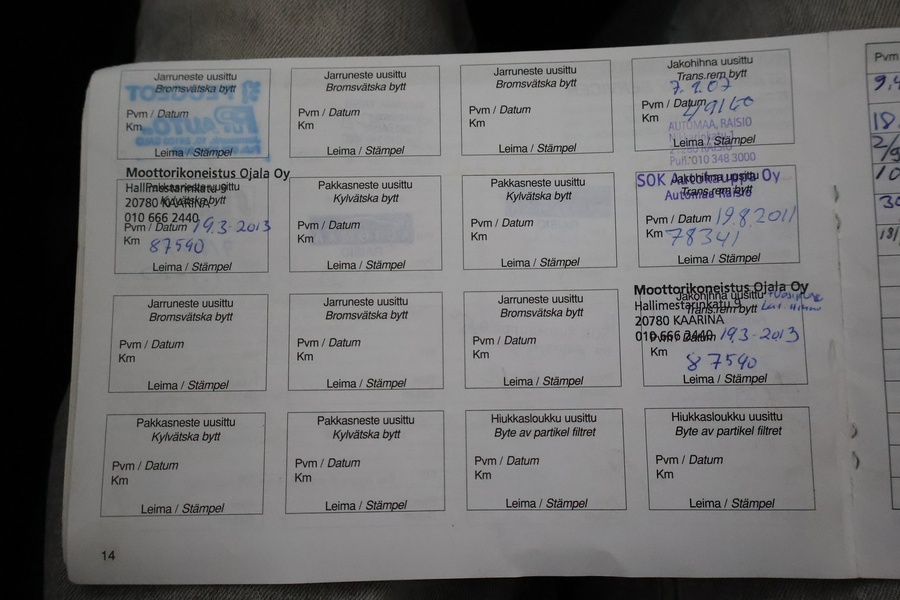 Jarruneste uusittu
Bromsvätska bytt
Pvm / Datum
Km
Leima / Stämpel
Jarruneste uusittu
Bromsvätska bytt
Pvm / Datum
Km
Leima / Stämpel
Jarruneste uusittu
Bromsvätska bytt
Pvm / Datum
Km
Leima / Stämpel
Jakohihna uusittu
Trans.rem bytt
Pvm / Datum
Km
Leima / Stämpel
AUTOMAA, RAISIO
Puh. 010 348 3000
Moottorikoneistus Ojala Oy
Hallimestarinkatu 9
20780 KAARINA
010 666 2440
Pakkasneste uusittu
Kylvätska bytt
Pvm / Datum 19.3-2013
Km 87590
Leima / Stämpel
Pakkasneste uusittu
Kylvätska bytt
Pvm / Datum
Km
Leima / Stämpel
Pakkasneste uusittu
Kylvätska bytt
Pvm / Datum
Km
Leima / Stämpel
SOK Autokauppa Oy
Automaa Raisio
Jakohihna uusittu
Trans.rem bytt
Pvm / Datum 19.8.2011
Km 78341
Leima / Stämpel
Jarruneste uusittu
Bromsvätska bytt
Pvm / Datum
Km
Leima / Stämpel
Jarruneste uusittu
Bromsvätska bytt
Pvm / Datum
Km
Leima / Stämpel
Jarruneste uusittu
Bromsvätska bytt
Pvm / Datum
Km
Leima / Stämpel
Moottorikoneistus Ojala Oy
Hallimestarinkatu 9
20780 KAARINA
010 666 2440
Jakohihna uusittu
Trans.rem bytt
Pvm / Datum 19.3-2013
Km
87590
Leima / Stämpel
Pakkasneste uusittu
Kylvätska bytt
Pvm / Datum
Km
Leima / Stämpel
Pakkasneste uusittu
Kylvätska bytt
Pvm / Datum
Km
Leima / Stämpel
Hiukkasloukku uusittu
Byte av partikel filtret
Pvm / Datum
Km
Leima / Stämpel
Hiukkasloukku uusittu
Byte av partikel filtret
Pvm / Datum
Km
Leima / Stämpel
14
Pvm